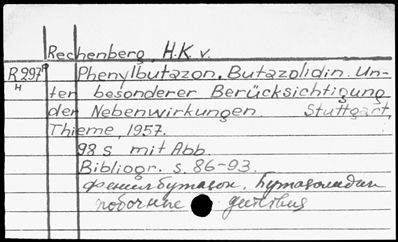 Rechenberg, H.K. v.
R 297 Phenylbutazon, Butazolidin. Un-
H ter besonderer Berücksichtigung
der Nebenwirkungen. Stuttgart,
Thieme, 1957.
98 s mit Abb.
Bibliogr. s. 86-93.
Фенилбутазон. Бутазолидин
побочные действия